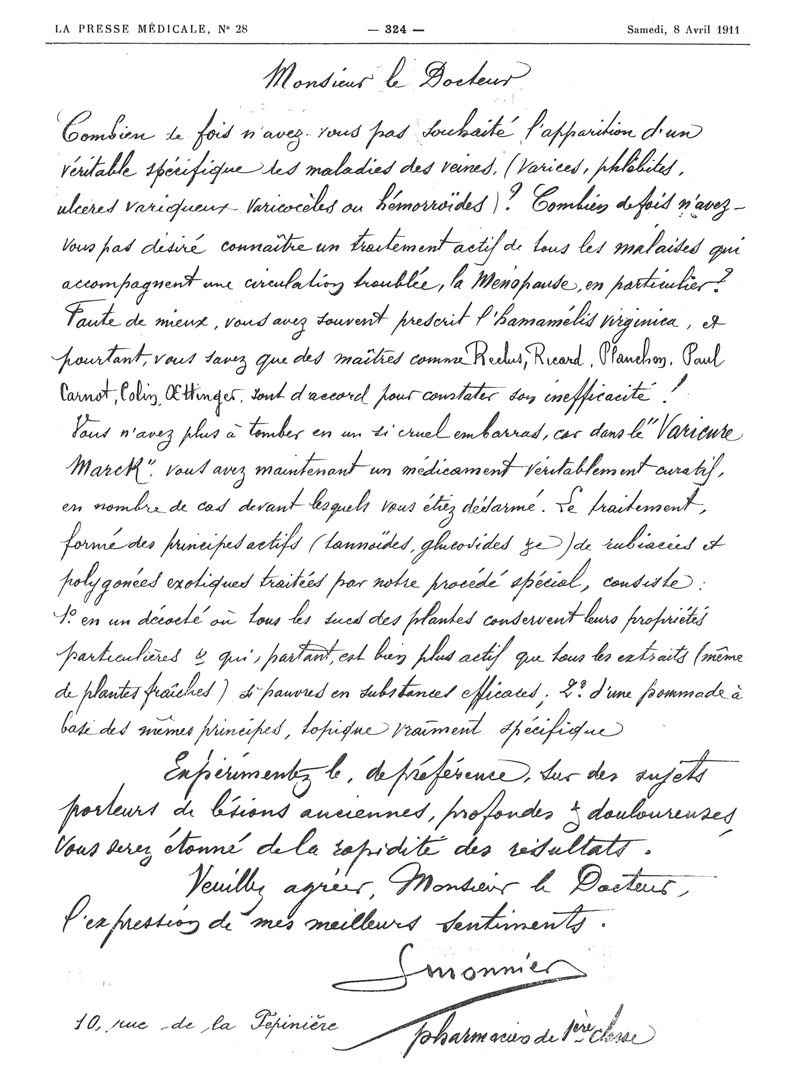 LA PRESSE MÉDICALE, N° 28 — 324 — Samedi, 8 Avril 1911
Monsieur le Docteur
Combien de fois n'avez-vous pas souhaité l'apparition d'un
véritable spécifique des maladies des veines, (varices, phlébites,
ulcères variqueux, varicocèles ou hémorroïdes)? Combien de fois n'avez-
vous pas désiré connaître un traitement actif de tous les malaises qui
accompagnent une circulation troublée, la Ménopause, en particulier?
Faute de mieux, vous avez souvent prescrit l'hamamélis virginica, et
pourtant, vous savez que des maîtres comme Reclus, Ricard, Planchon, Paul
Carnot, Colin, Œttinger, sont d'accord pour constater son inefficacité!
Vous n'avez plus à tomber en un si cruel embarras, car dans le "Varicure
Marck" vous avez maintenant un médicament véritablement curatif,
en nombre de cas devant lesquels vous étiez désarmé. Le traitement,
formé des principes actifs (tannoïdes, glucovides &c) de rubiacées et
polygonées exotiques traitées par notre procédé spécial, consiste:
1° en un décocté où tous les sucs des plantes conservent leurs propriétés
particulières & qui, partant, est bien plus actif que tous les extraits (même
de plantes fraîches) si pauvres en substances efficaces; 2° d'une pommade à
base des mêmes principes, topique vraiment spécifique
Expérimentez le, de préférence, sur des sujets
porteurs de lésions anciennes, profondes & douloureuses,
vous serez étonné de la rapidité des résultats.
Veuillez agréer, Monsieur le Docteur,
l'expression de mes meilleurs sentiments.
Simonnier
10, rue de la Pépinière
pharmacien de 1ère classe